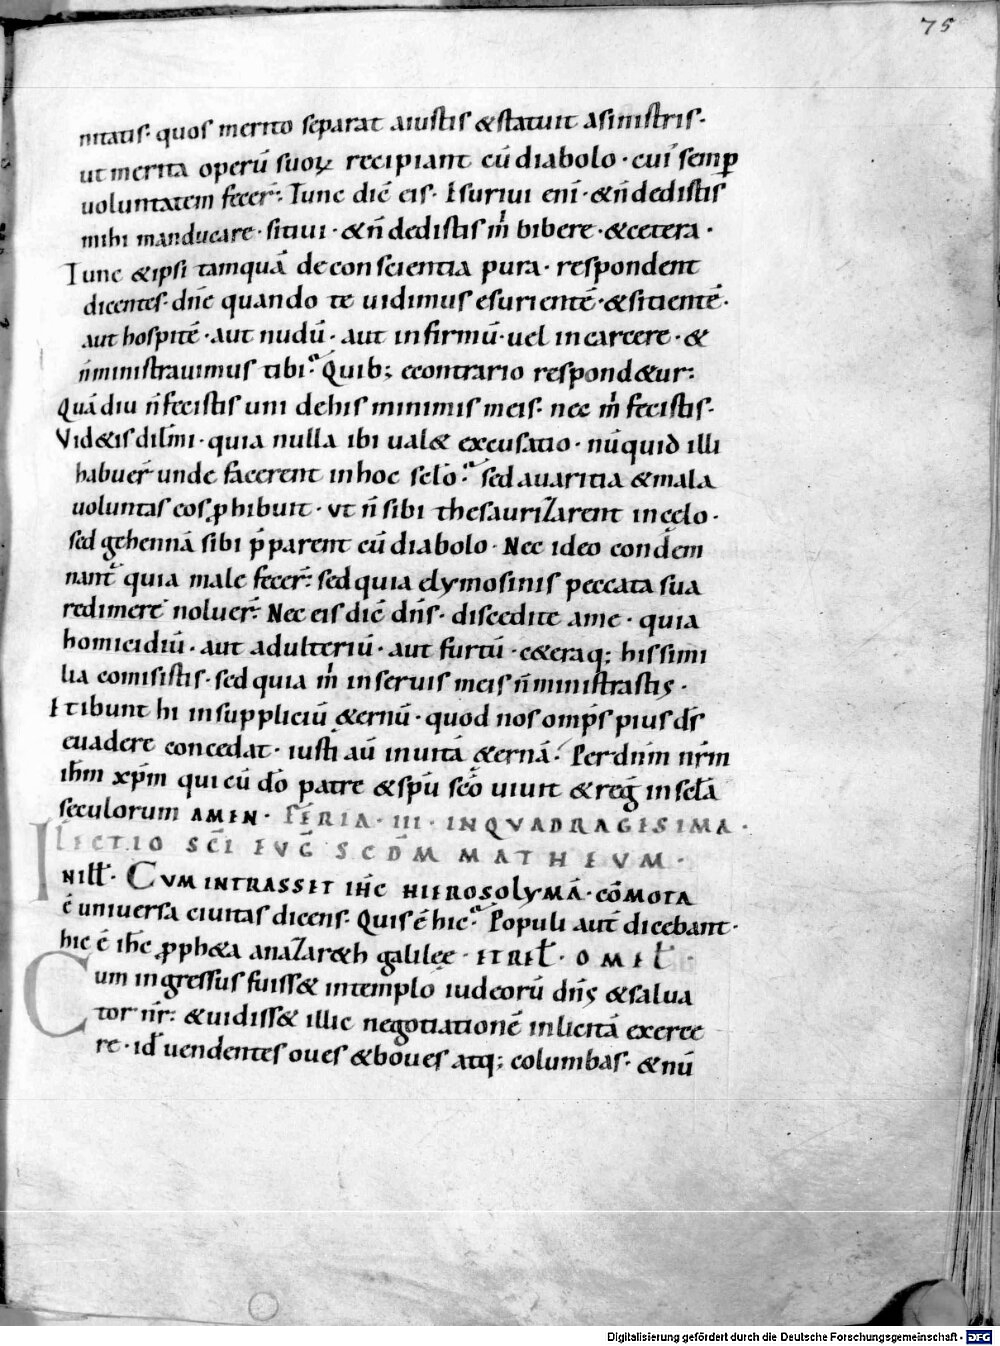 75
nitatis· quos merito separat aiustis &statuit asinistris·
ut merita operū suoꝝ recipiant cū diabolo· cui semꝑ
uoluntatem fecer̄· Tunc dic̄ eis· Esuriui eni̅· &n̄ dedistis
mihi manducare· sitiui· &n̄ dedistis m̍ bibere· &cetera·
Tunc &ipsi tamquā deconscientia pura· respondent
dicentes· dn̄e quando te uidimus esurientē· &sitientē·
aut hospitē· aut nudū· aut infirmū· uel incarcere· &
n̄ministrauimus tibi· Quib; econtrario respond&ur:
Quādiu n̄fecistis uni dehis minimis meis· nec m̍ fecistis·
Vid&is dil̄mi· quia nulla ibi ual& excusatio· nūquid illi
habuer̄ unde facerent inhoc sclo̅· sed auaritia &mala
uoluntas eos ꝓhibuit· ut n̄ sibi thesaurizarent incęlo·
sed gehennā sibi p̄parent cū diabolo· Nec ideo condem
nant̄ quia male fecer̄: sed quia elymosinis peccata sua
redimere noluer̄· Nec eis dic̄ dn̄s· discedite ame· quia
homicidiū· aut adulteriū· aut furtū· c&eraq; hissimi
lia comisistis· sed quia m̍ inseruis meis n̄ministrastis·
Et ibunt hi insuppliciū &ernū· quod nos omp̄s pius ds̄
euadere concedat· iusti aū inuitā &ernā· Per dn̄m nr̄m
ih̄m xp̄m qui cū dō patre &spū scō uiuit &reg̅ inscl̄a
seculorum AMEN· FERIA· III· INQVADRAGESIMA·
LECTIO SC̄I EVG̅ SCDM̅ MATHEVM·
INILL̄· CVM INTRASSET IHC̅ HIEROSOLYMĀ· CŌMOTA
ē uniuersa ciuitas dicens· Quis ē hic· Populi aut̄ dicebant·
hic ē ih̄c ꝓph&a anazar&h galilęe· ETREL̄· OMEL̄·
Cum ingressus fuiss& intemplo iudeorū dn̄s &salua
tor nr̄: &uidiss& illic negotiationē inlicitā exerce
re· id̄ uendentes oues &boues atq; columbas· &nū
Digitalisierung gefördert durch die Deutsche Forschungsgemeinschaft - DFG